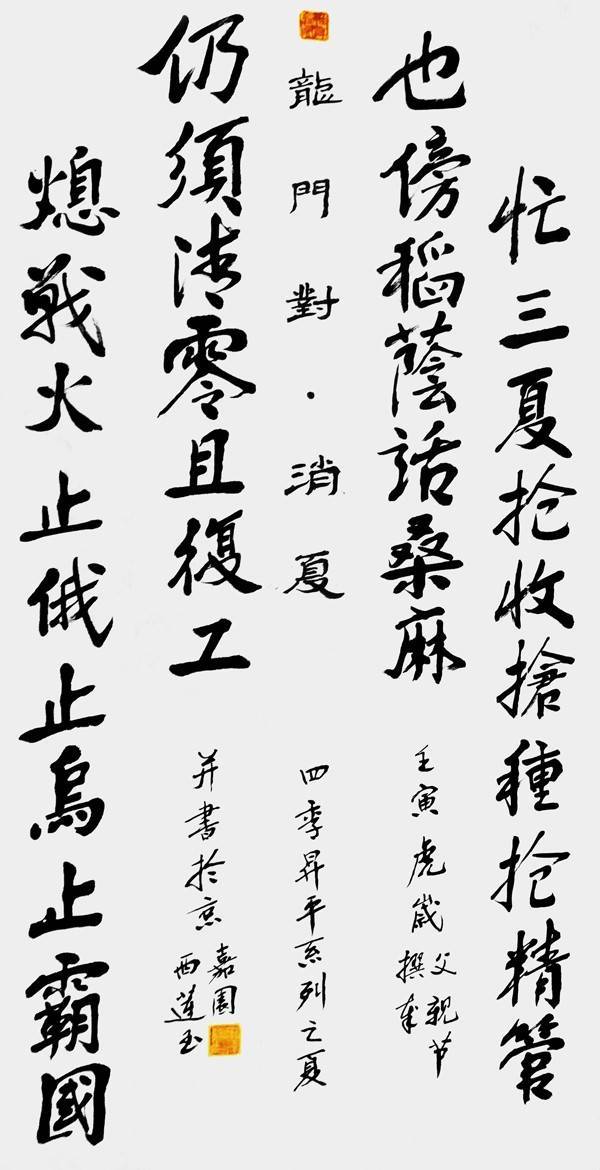 忙三夏抢收搶種抢精管
也傍稻蔭話桑麻
龍門對·消夏
仍須清零且復工
熄戰火止俄止烏止霸國
壬寅虎歲父親节撰
四季昇平系列之夏
并書於京西蓮玉嘉園